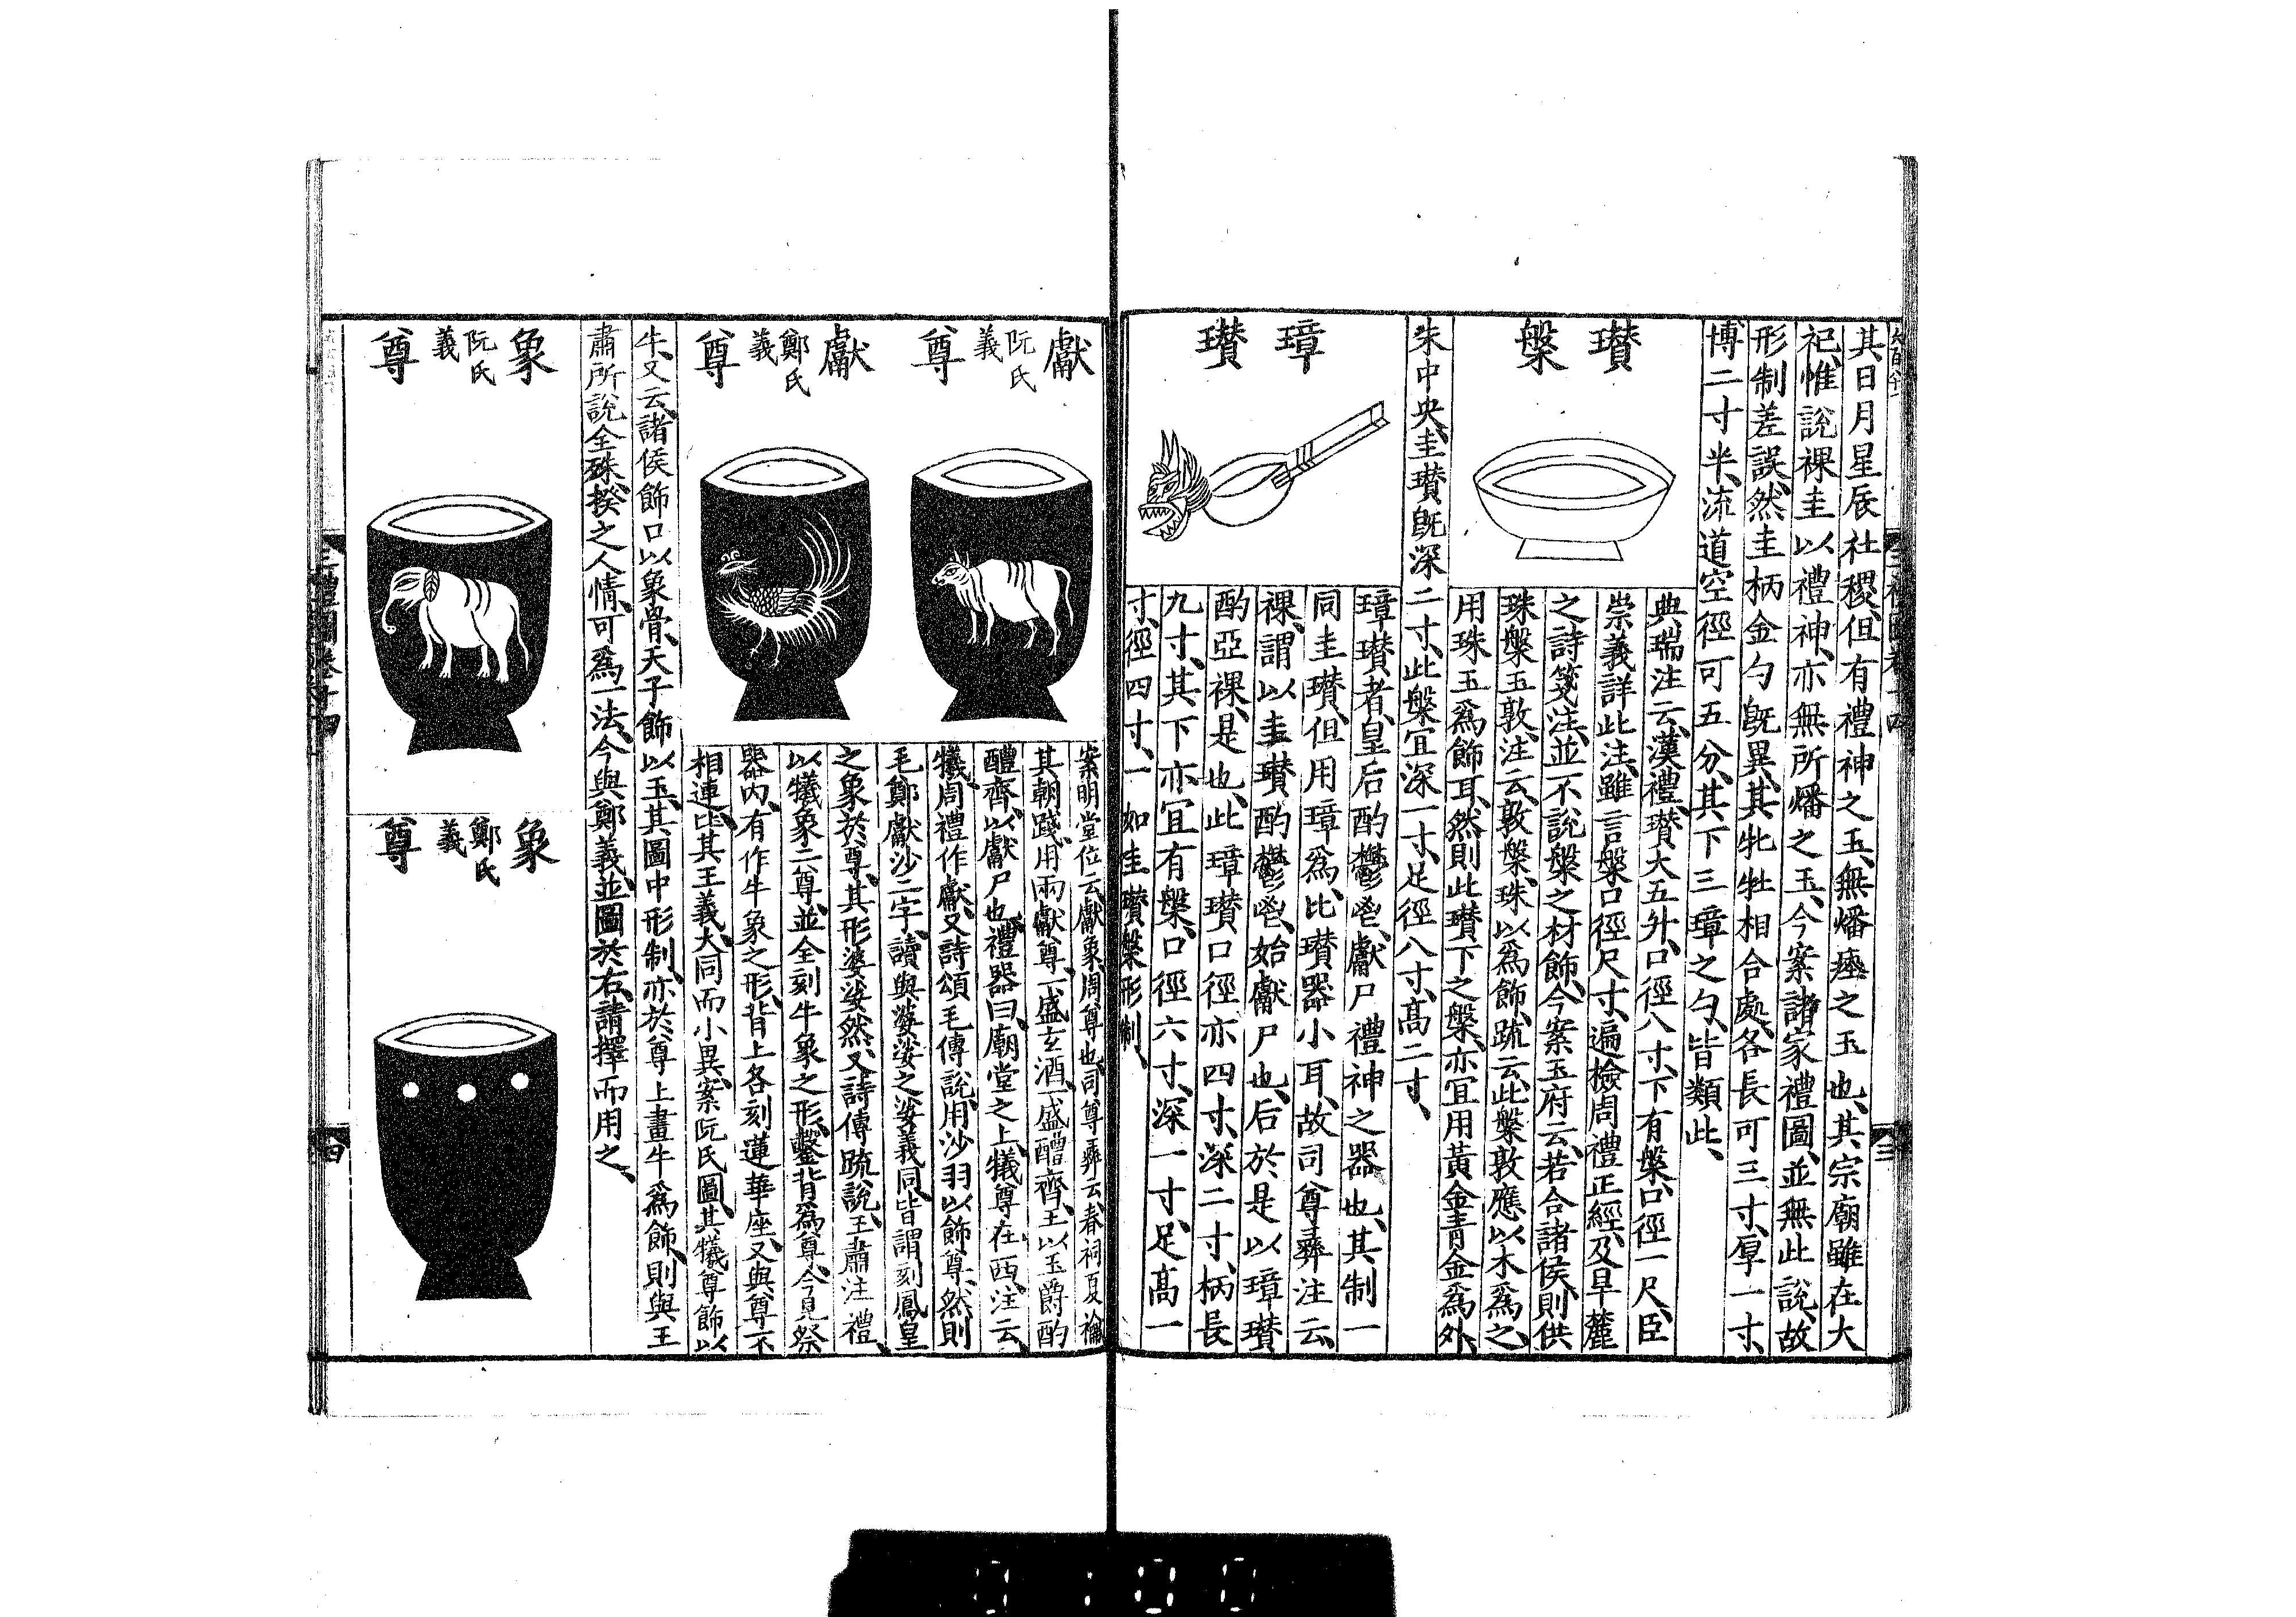 其日月星辰社稷但有禮神之玉無燔瘞之玉也其宗廟雖在大
祀惟說祼圭以禮神亦無所燔之玉今案諸家禮圖並無此說故
形制差誤然圭柄金勺既異其牝牡相合處各長可三寸厚一寸
博二寸半流道空徑可五分其下三璋之勺皆類此
瓚槃
典瑞注云漢禮瓚大五升口徑八寸下有槃口徑一尺臣
崇義詳此注雖言槃口徑尺寸遍檢周禮正經及旱麓
之詩箋注並不說槃之材飾今案玉府云若合諸侯則供
珠槃玉敦注云敦槃珠以為飾疏云此槃敦應以木為之
用珠玉為飾耳然則此瓚下之槃亦宜用黃金青金為外
朱中央圭瓚既深二寸此槃宜深一寸足徑八寸高二寸
璋瓚
璋瓚者皇后酌鬱鬯獻尸禮神之器也其制一
同圭瓚但用璋為比瓚器小耳故司尊彝注云
祼謂以圭瓚酌鬱鬯始獻尸也后於是以璋瓚
酌亞祼是也此璋瓚口徑亦四寸深二寸柄長
九寸其下亦宜有槃口徑六寸深一寸足高一
寸徑四寸一如圭瓚槃形制
獻尊 阮氏義
獻尊 鄭氏義
案明堂位云獻象周尊也司尊彝云春祠夏禴
其朝踐用兩獻尊一盛玄酒一盛醴齊王以玉爵酌
醴齊以獻尸也禮器曰廟堂之上犧尊在西注云
犧周禮作獻又詩頌毛傳說用沙羽以飾尊然則
毛鄭獻沙二字讀與婆娑之娑義同皆謂刻鳳皇
之象於尊其形婆娑然又詩傳疏說王肅注禮
以犧象二尊並全刻牛象之形鑿背為尊今見祭
器內有作牛象之形背上各刻蓮華座又與尊不
相連比其王義大同而小異案阮氏圖其犧尊飾以
牛又云諸侯飾口以象骨天子飾以玉其圖中形制亦於尊上畫牛為飾則與王
肅所說全殊揆之人情可為一法今與鄭義並圖於右請擇而用之
象尊 阮氏義
象尊 鄭氏義
三禮圖卷十四
四